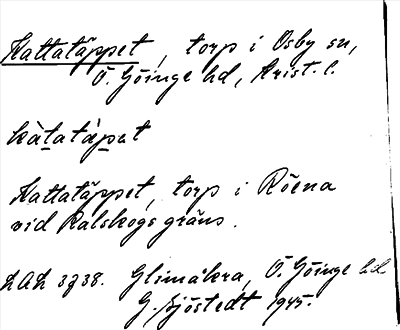 Kattatäppet, torp i Osby sn,
Ö. Göinge hd, Krist. l.
kàtatäpat
Kattatäppet, torp i Röena
vid Ralskogs gräns.
LAL 3738. Glimåkra, Ö. Göinge hd
G. Sjöstedt 1945.